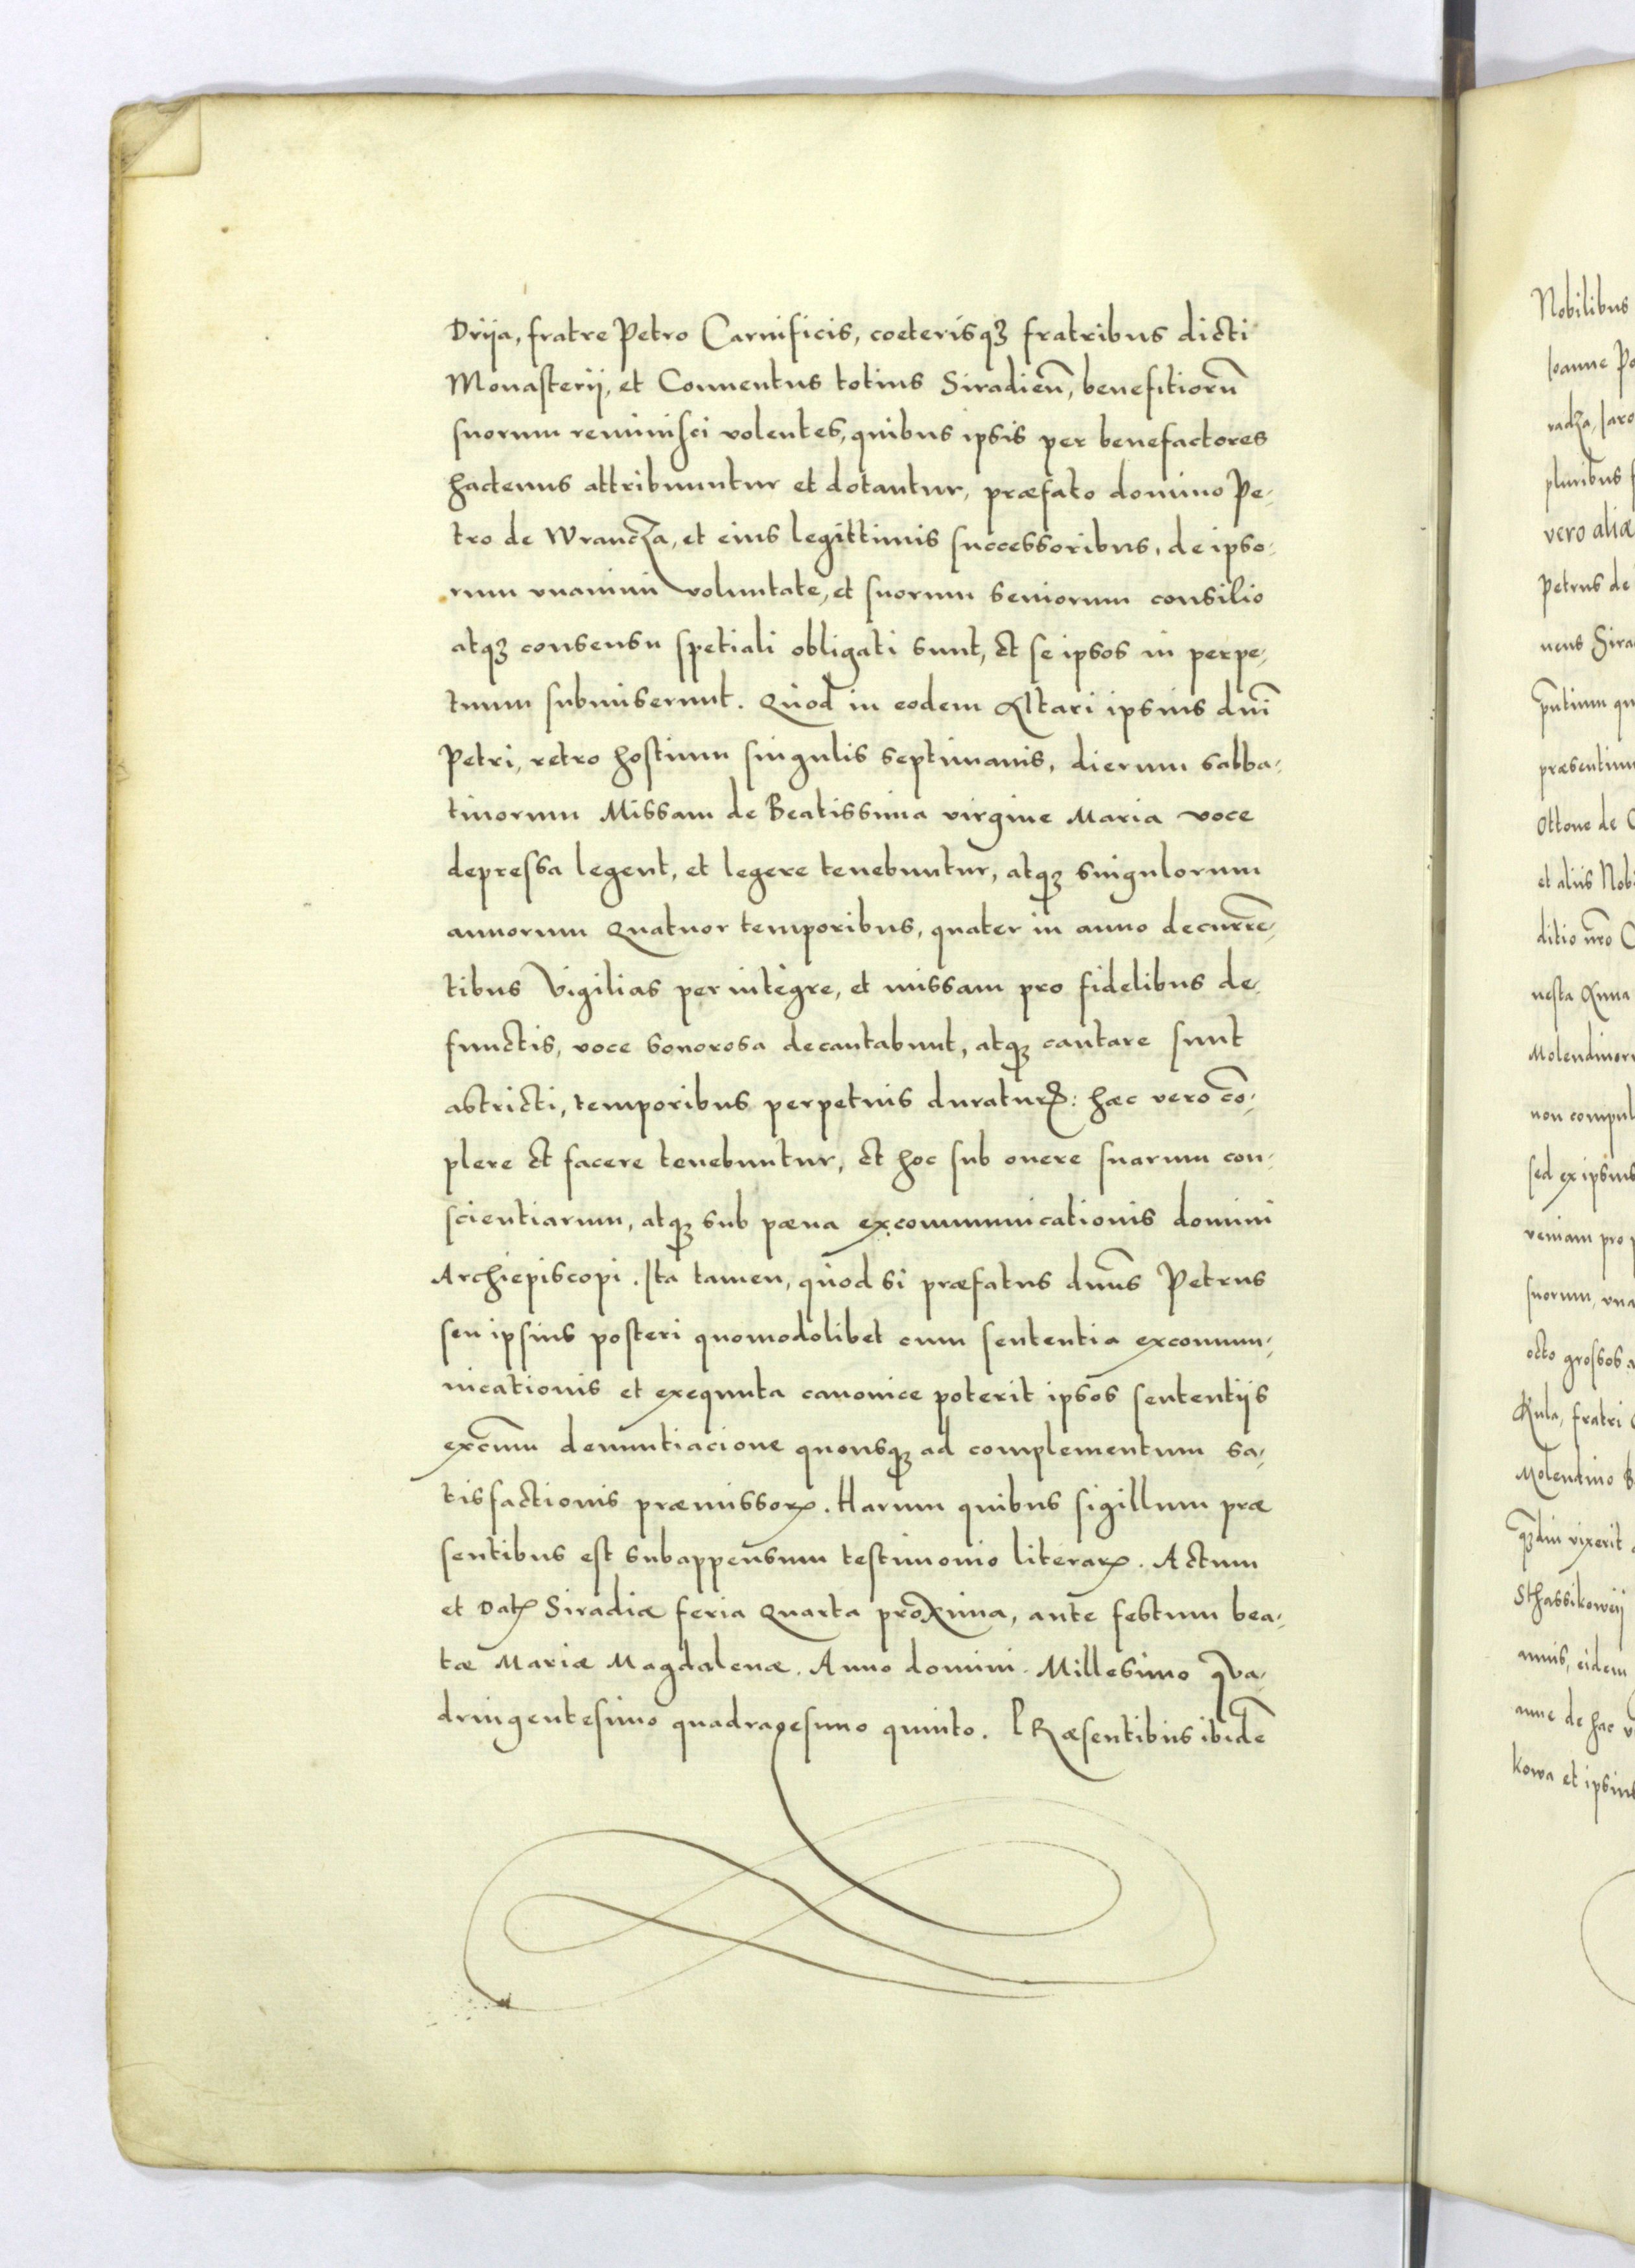 Drija, fratre Petro Carnificis, coeterisqꝫ fratribus dicti
Monasterij, et Conuentus totius Siradieñ, benefitiorũ
suorum reminisci volentes, quibus ipsis per benefactores
hactenus attribuuntur et dotantur, præfato domino Pe-
tro de Wrancza, et eius legittimis successoribus, de ipso-
rum vnanimi voluntate, et suorum seniorum consilio
atqꝫ consensu spetiali obligati sunt, et se ipsos in perpe-
tuum submiserunt. Quod in eodem Altari ipsius dnĩ
Petri, retro hostium singulis septimanis, dierum sabba-
tinorum Missam de Beatissima virgine Maria voce
depressa legent, et legere tenebuntur, atqꝫ singulorum
annorum Quatuor temporibus, quater in anno decurrẽ-
tibus Vigilias per integre, et missam pro fidelibus de-
functis, voce sonorosa decantabunt, atqꝫ cantare sunt
astricti, temporibus perpetuis duraturꝭ: hæc vero cõ-
plere et facere tenebuntur, et hoc sub onere suarum con-
scientiarum, atqꝫ sub pæna excommunicationis domini
Archiepiscopi. Ita tamen, quod si præfatus dnũs Petrus
seu ipsius posteri quomodolibet cum sententia excommu-
nicationis et exequuta canonice poterit ipsos sententijs
excõmu denuntiacione quousqꝫ ad complementum sa-
tisfactionis præmissoꝝ. Harum quibus sigillum præ
sentibus est subappensum testimonio literaꝝ. Actum
et Datꝭ Siradiæ feria Quarta proxima, ante festum bea-
tæ Mariæ Magdalenæ. Anno domini. Millesimo qua-
dringentesimo quadragesimo quinto. PRæsentibus ibidẽ
Nobilibus
Ioanne
radza,
pluribus
vero aliæ
Petrus de
præsentium
Ottone de
et alijs
nesta Anna
non compul
sed ex ipsius
veniam pro
suorum, vna
octo grossos
fratri
Molendino
vixerit
Sthassikoweij
annis, eidem
anne de hac
kowa et ipsius